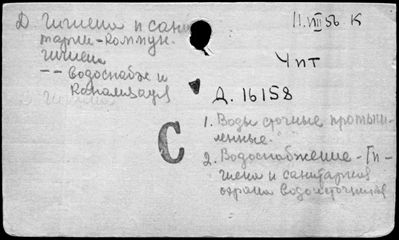 Д. Гигиена и сани
тарии - Коммун.
гигиена
-- Водоснабж и
Канализация
11.VIII 56 К
Чит
Д. 16158
С
1. Воды сточные промыш-
ленные.
2. Водоснабжение - Ги
гиена и санитарная
охрана водоисточников